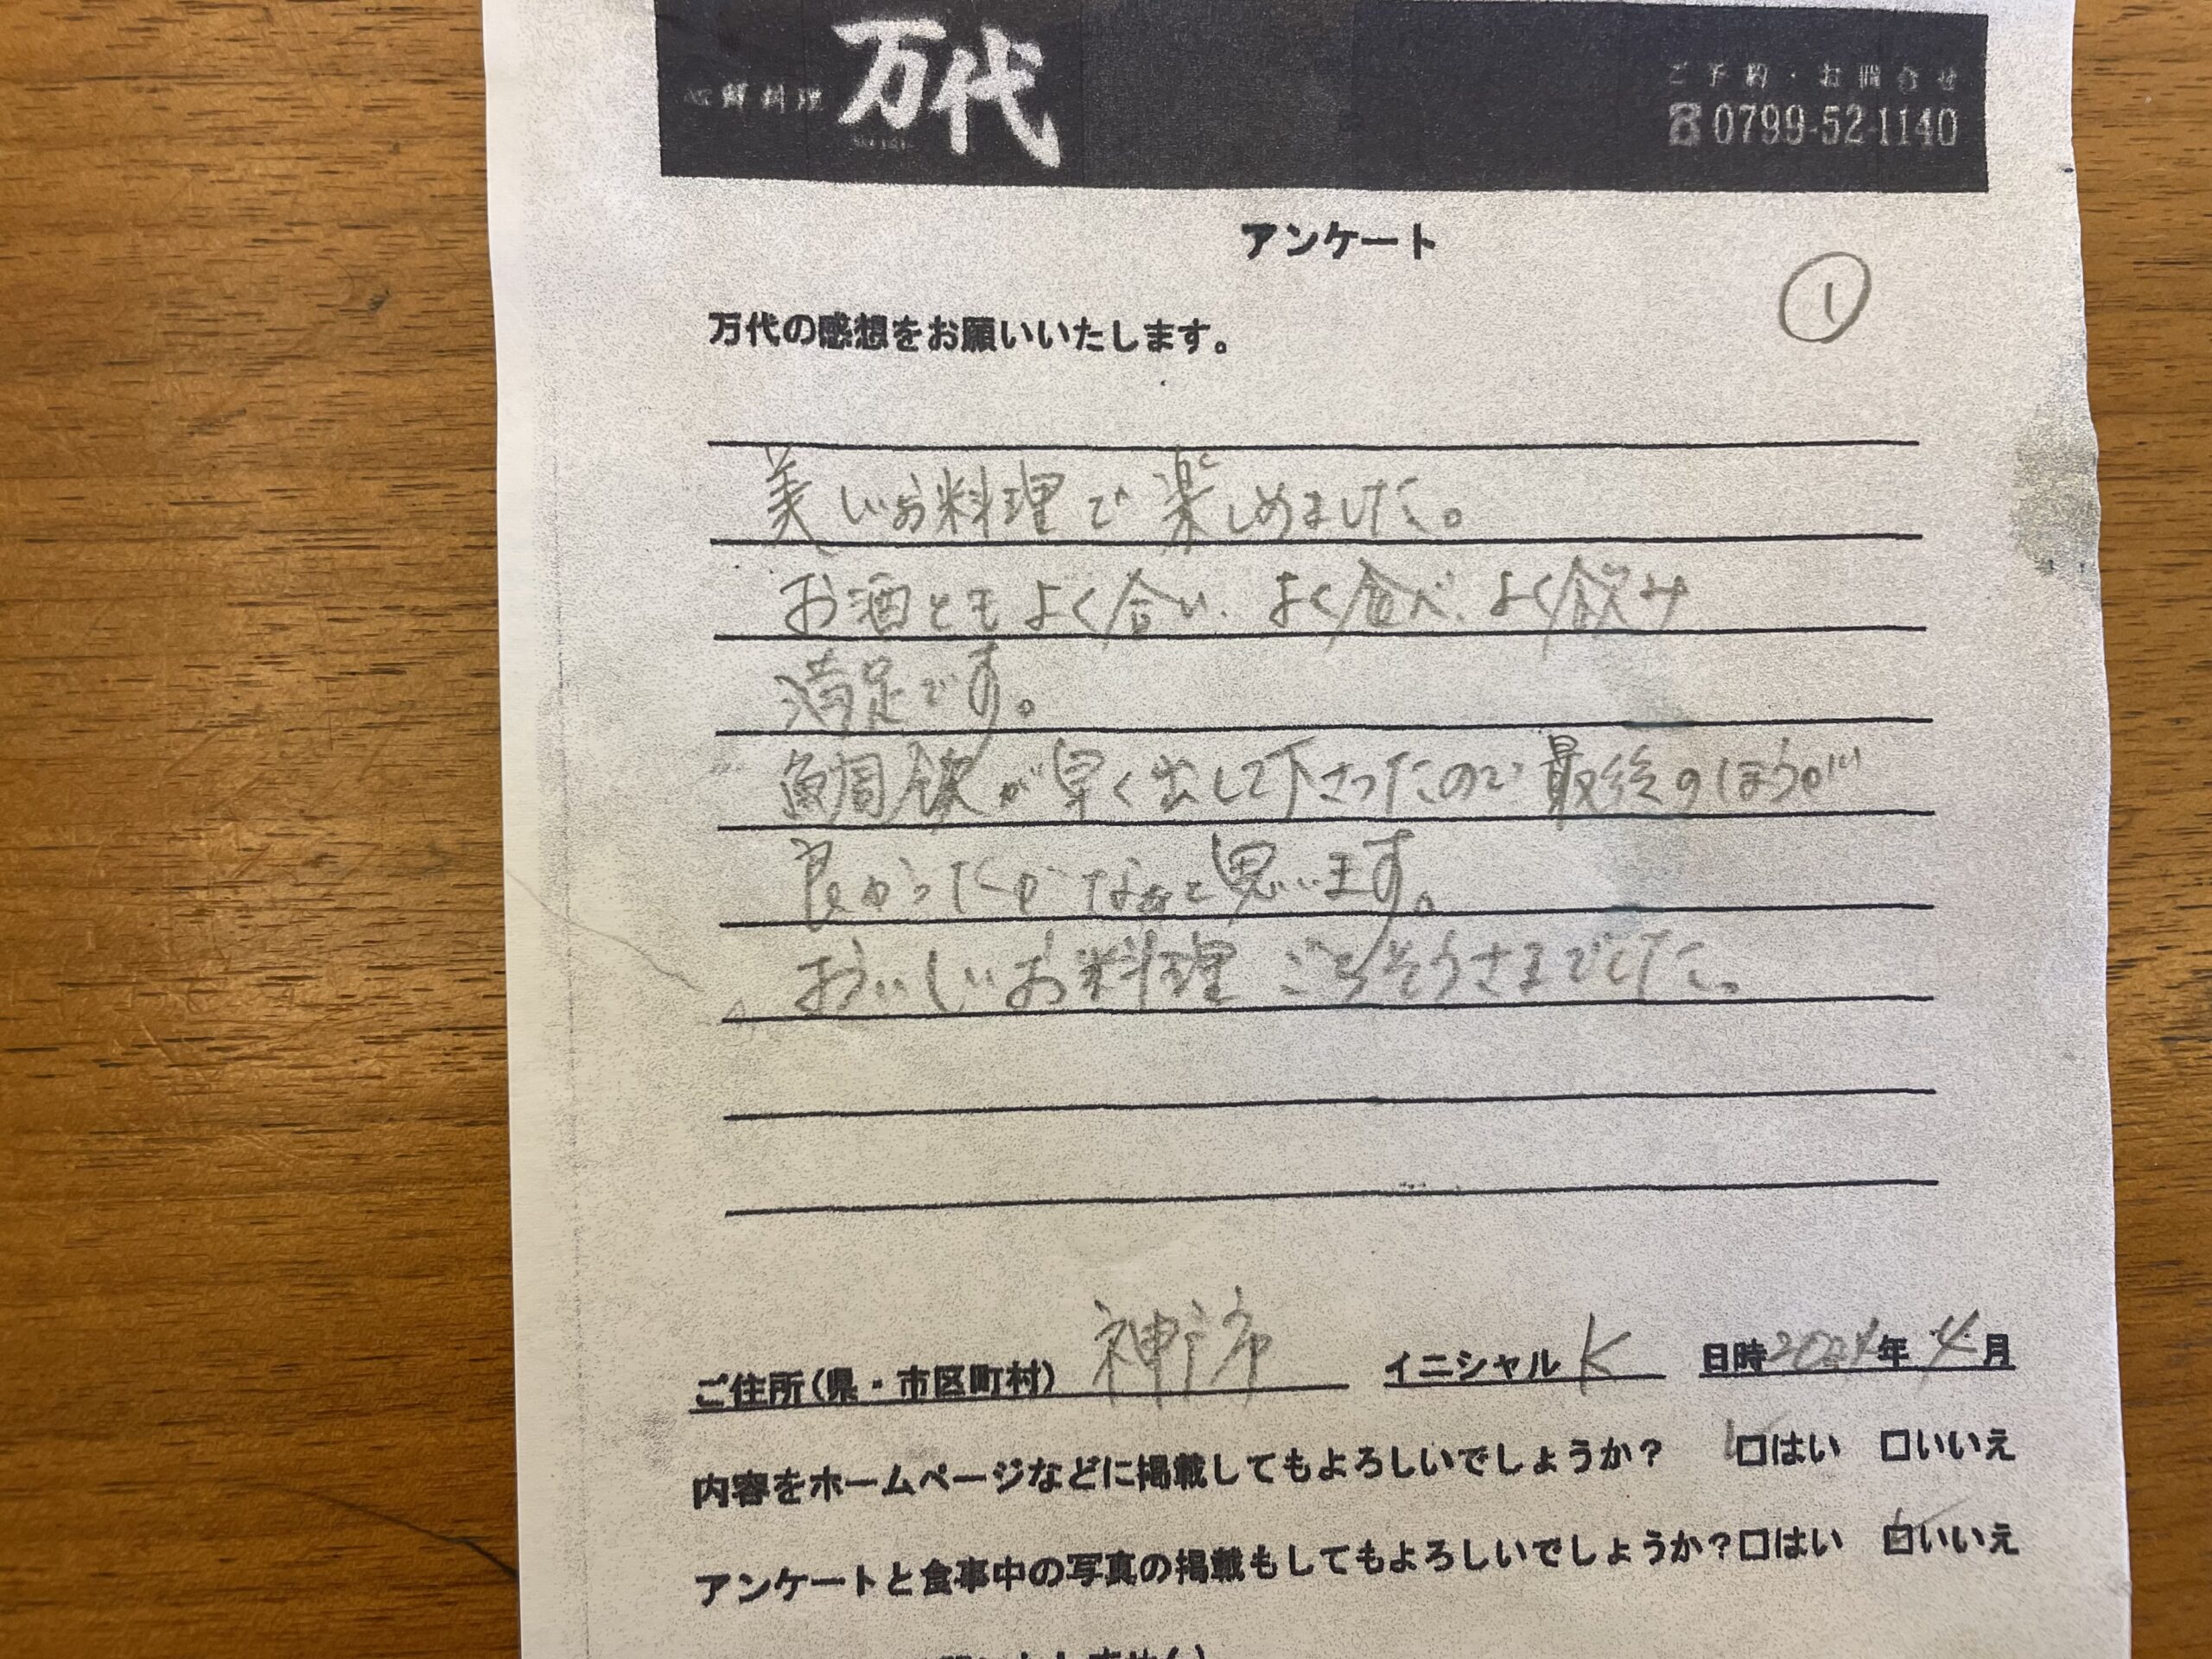 心鮮料理 万代
ご予約・お問合せ
☎0799-52-1140
アンケート
①
万代の感想をお願いいたします。
美しいお料理で楽しめました。
お酒ともよく合い、よく食べ、よく飲み
満足です。
鯛飯が早く出して下さったので最後のほうが
良かったかなぁと思います。
おいしいお料理ごちそうさまでした。
ご住所(県・市区町村) 神戸市 イニシャル K 日時2024年4月
内容をホームページなどに掲載してもよろしいでしょうか? ☑はい □いいえ
アンケートと食事中の写真の掲載もしてもよろしいでしょうか?□はい ☑いいえ